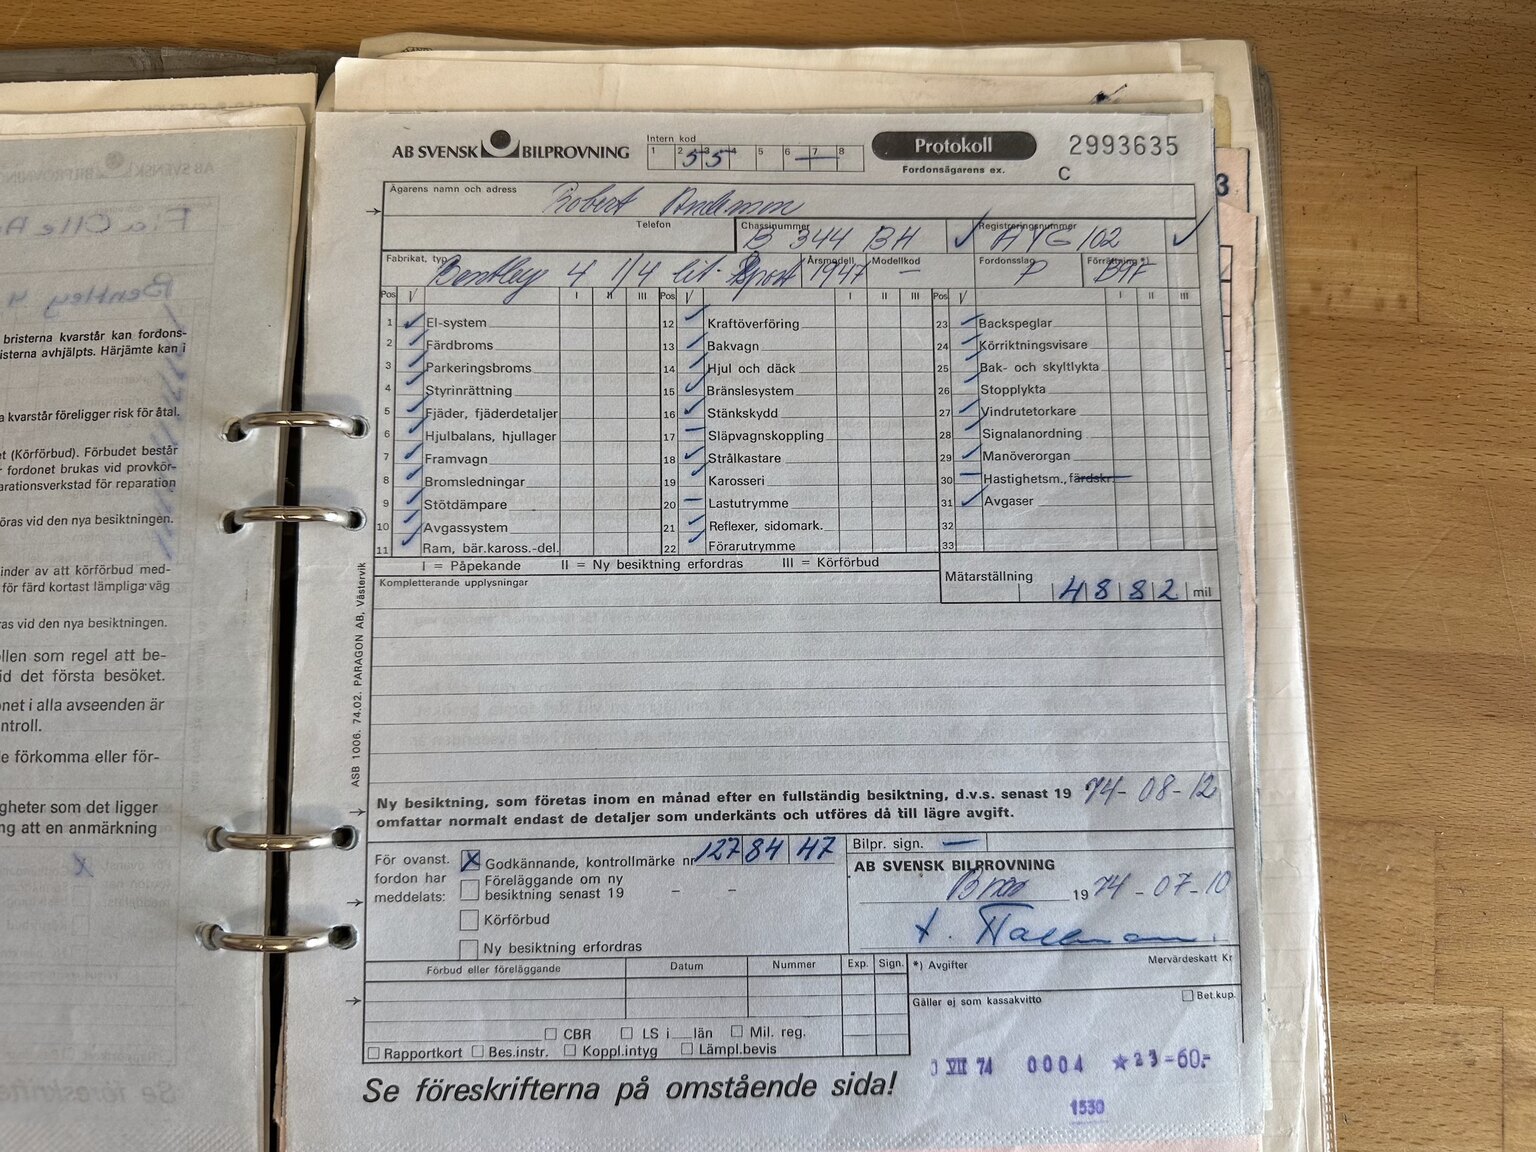 AB SVENSK BILPROVNING
Intern kod
1 2 3 4 5 6 7 8
55 —
Protokoll
Fordonsägarens ex.
2993635
C
Ägarens namn och adress
Robert
Telefon
Chassinummer
B 344 BH
Registreringsnummer
AYG 102
Fabrikat, typ
Bentley 4 1/4 lit. Sport
Årsmodell
1947
Modellkod
—
Fordonsslag
P
Förrättning *)
Pos V I II III Pos V I II III Pos V I II III
1 El-system 12 Kraftöverföring 23 Backspeglar
2 Färdbroms 13 Bakvagn 24 Körriktningsvisare
3 Parkeringsbroms 14 Hjul och däck 25 Bak- och skyltlykta
4 Styrinrättning 15 Bränslesystem 26 Stopplykta
5 Fjäder, fjäderdetaljer 16 Stänkskydd 27 Vindrutetorkare
6 Hjulbalans, hjullager 17 Släpvagnskoppling 28 Signalanordning
7 Framvagn 18 Strålkastare 29 Manöverorgan
8 Bromsledningar 19 Karosseri 30 Hastighetsm., färdskr.
9 Stötdämpare 20 Lastutrymme 31 Avgaser
10 Avgassystem 21 Reflexer, sidomark. 32
11 Ram, bär.kaross.-del. 22 Förarutrymme 33
I = Påpekande II = Ny besiktning erfordras III = Körförbud
Mätarställning
4882 mil
Kompletterande upplysningar
ASB 1006. 74.02. PARAGON AB, Västervik
Ny besiktning, som företas inom en månad efter en fullständig besiktning, d.v.s. senast 19 74-08-12
omfattar normalt endast de detaljer som underkänts och utföres då till lägre avgift.
För ovanst. fordon har meddelats:
X Godkännande, kontrollmärke nr 127 84 47
Föreläggande om ny
besiktning senast 19 – –
Körförbud
Ny besiktning erfordras
Bilpr. sign. —
AB SVENSK BILPROVNING
19 74-07-10
Förbud eller föreläggande Datum Nummer Exp. Sign.
*) Avgifter Mervärdeskatt Kr
Gäller ej som kassakvitto Bet.kup.
CBR LS i län Mil. reg.
Rapportkort Bes.instr. Koppl.intyg Lämpl.bevis
Se föreskrifterna på omstående sida!
VII 74 0004 ★23-60.-
1530
bristerna kvarstår kan fordons-
isterna avhjälpts. Härjämte kan i
a kvarstår föreligger risk för åtal.
et (Körförbud). Förbudet består
fordonet brukas vid provkör-
arationsverkstad för reparation
öras vid den nya besiktningen.
inder av att körförbud med-
för färd kortast lämpliga väg
ras vid den nya besiktningen.
ollen som regel att be-
id det första besöket.
onet i alla avseenden är
ntroll.
e förkomma eller för-
gheter som det ligger
ng att en anmärkning
3